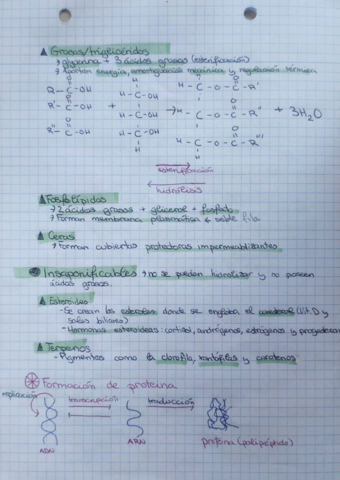 ▲ Grasas/triglicéridos
→ glicerina + 3 ácidos grasos (esterificación)
→ Aportan energía, amortiguación mecánica y regulación térmica
O H H O
R - C - OH H - C - OH H - C - O - C - R'
O O
R' - C - OH + H - C - OH → H - C - O - C - R'' + 3H2O
O O
R'' - C - OH H - C - OH H - C - O - C - R'''
H H
esterificación
hidrólisis
▲ Fosfolípidos
→ 2 ácidos grasos + glicerol + fosfato
→ Forman membrana plasmática
▲ Ceras
→ Forman cubiertas protectoras impermeabilizantes
Insaponificables → no se pueden hidrolizar y no poseen
ácidos grasos.
▲ Esteroides
- Se crean los esteroles donde se engloba el colesterol (Vit. D y
sales biliares)
- Hormonas esteroideas: cortisol, andrógenos, estrógenos y progesterona
▲ Terpenos
- Pigmentos como la clorofila, xantofilas y carotenos
Formación de proteína
replicación transcripción traducción
ADN ARN proteína (polipéptido)